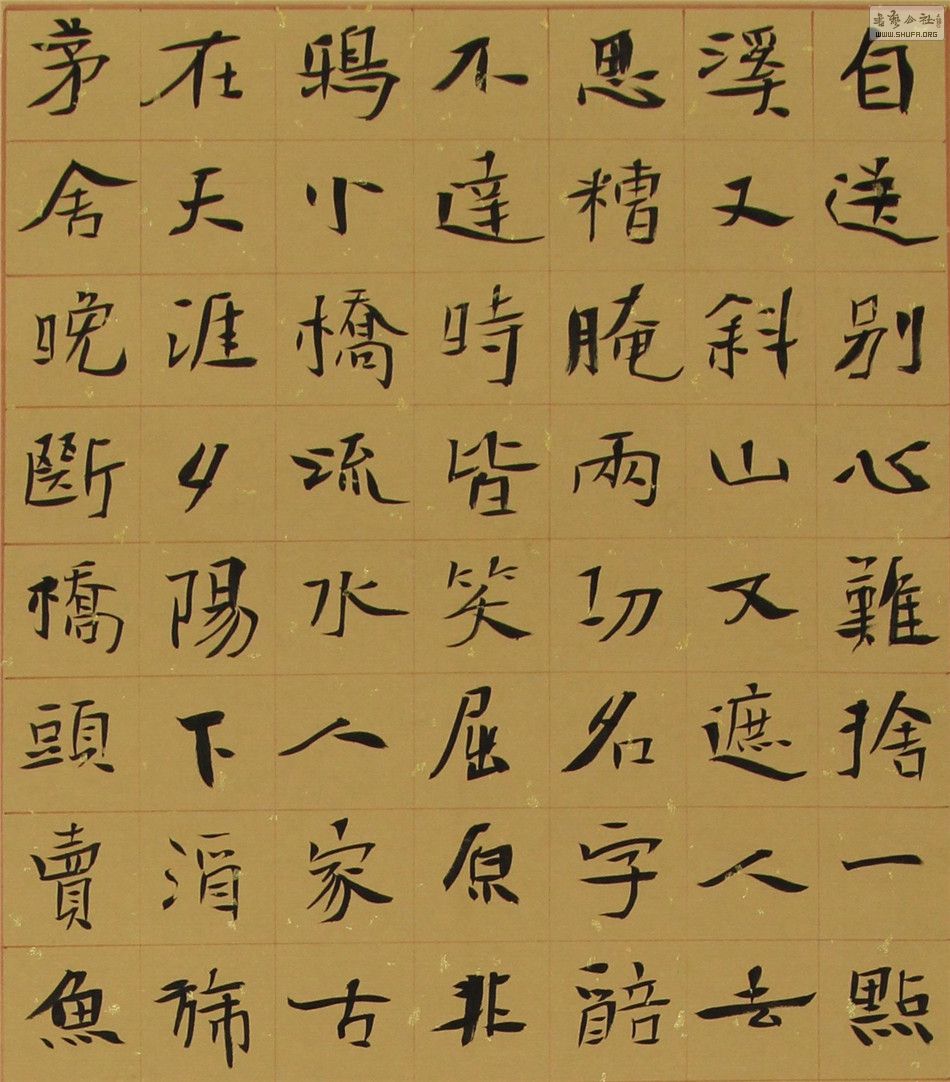 自送别心難捨一點
溪又斜山又遮人去
思糟腌兩功名字醅
不達時皆笑屈原非
鴉小橋流水人家古
在天涯夕陽下酒旆
茅舍晚斷橋頭賣魚
書藝公社
WWW.SHUFA.ORG